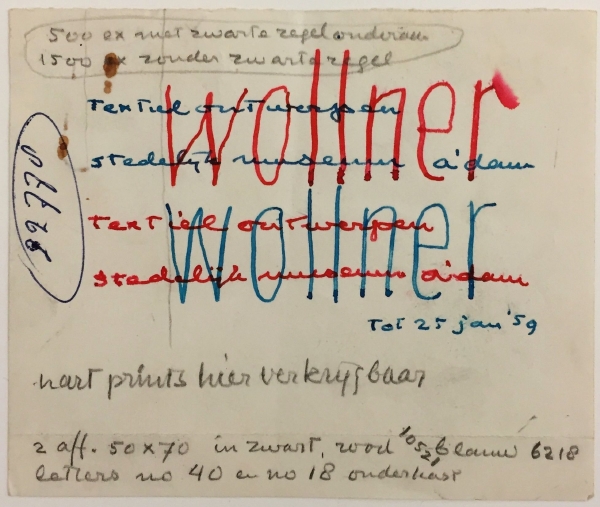 500 ex met zwarte regel onderaan
1500 ex zonder zwarte regel
wollner
textiel ontwerpen
stedelijk museum a'dam
wollner
textiel ontwerpen
stedelijk museum a'dam
tot 25 jan '59
nart prints hier verkrijgbaar
2 aff. 50x70 in zwart, rood blauw 6218
letters no 40 en no 18 onderkast